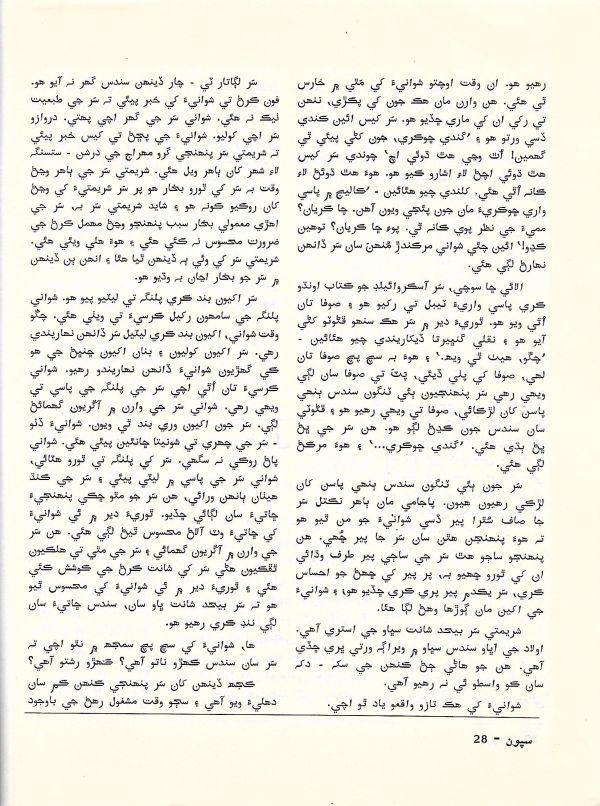 رهيو هو. ان وقت اوچتو شوانيءَ کي مٿي ۾ خارس
ٿي هئي. هن وارن مان هڪ جون کي پڪڙي، ننهن
تي رکي ان کي ماري ڇڏيو هو. سَر کيس ائين ڪندي
ڏسي ورتو هو ۽ 'گندي ڇوڪري، جون کڻي پيئي ٿي
گھمين! اُٿ وڃي هٿ ڌوئي اچ' چوندي سَر کيس
هٿ ڌوئي اچڻ لاءِ اشارو ڪيو هو. هوءَ هٿ ڌوئڻ لاءِ
ڪانه اُٿي هئي. کلندي چيو هئائين - 'ڪاليج ۾ پاسي
واري ڇوڪريءَ مان جون پئجي ويون آهن. ڇا ڪريان؟
مميءَ جي نظر پوي ڪانه ٿي. پوءِ ڇا ڪريان؟ توهين
ڪڍو!' ائين چئي شواني مرڪندڙ مُنهن سان سَر ڏانهن
نهارڻ لڳي هئي.
الائي ڇا سوچي، سَر آسڪروائيلڊ جو ڪتاب اونڌو
ڪري پاسي واريءَ ٽيبل تي رکيو هو ۽ صوفا تان
اُٿي ويو هو. ٿوريءَ دير ۾ سَر هڪ سنهو ڦڻوٽو کڻي
آيو هو ۽ نقلي گنڀيرتا ڏيکاريندي چيو هئائين -
'چڱو، هيٺ ٿي ويھ.' ۽ هوءَ بہ سچ پچ صوفا تان
لهي، صوفا کي پٺي ڏيئي، پٽ تي صوفا سان لڳي
ويھي رهي. سَر پنهنجيون ٻئي ٽنگون سندس ٻنهي
پاسن کان لڙڪائي، صوفا تي ويھي رهيو هو ۽ ڦڻوٽي
سان سندس جون ڪڍڻ لڳو هو. هن سَر جي ڀڻ
ڀڻ ٻڌي هئي. 'گندي ڇوڪري...' ۽ هوءَ مرڪڻ
لڳي هئي.
سَر جون ٻئي ٽنگون سندس ٻنهي پاسن کان
لڙڪي رهيون هيون. پاجامي مان ٻاهر نڪتل سَر
جا صاف سٿرا پير ڏسي شوانيءَ جو من ٿيو هو
تہ هوءَ پنهنجن هٿن سان سَر جا پير ڇُهي. هن
پنهنجو ساڄو هٿ سَر جي ساڄي پير طرف وڌائي
ان کي ٿورو ڇهيو بہ، پر پير کي ڇهڻ جو احساس
ڪري، سَر يڪدم پير پري ڪري ڇڏيو هو، ۽ شوانيءَ
جي اکين مان ڳوڙها وهڻ لڳا هئا.
شريمتي سَر بيحد شانت سڀاو جي استري آهي.
اولاد جي اڀاو سندس سڀاو ۾ ويراڳہ ورتي ڀري ڇڏي
آهي. هن جو هاڻي ڄڻ ڪنهن جي سکہ - دکہ
سان ڪو واسطو ئي نہ رهيو آهي.
شوانيءَ کي هڪ تازو واقعو ياد ٿو اچي.
سَر لڳاتار ٽي - چار ڏينهن سندس گھر نہ آيو هو.
فون ڪرڻ تي شوانيءَ کي خبر پيئي تہ سَر جي طبيعت
ٺيڪ نہ هئي. شواني سَر جي گھر اچي پهتي. دروازو
سَر اچي کوليو. شوانيءَ جي پڇڻ تي کيس خبر پيئي
تہ شريمتي سَر پنهنجي گرو مهراج جي درشن - ستسنگہ
لاءِ شهر کان ٻاهر ويل هئي. شريمتي سَر جي ٻاهر وڃڻ
وقت بہ سَر کي ٿورو بخار هو پر سَر شريمتيءَ کي وڃڻ
کان روڪيو ڪونہ هو ۽ شايد شريمتي سَر بہ، سَر جي
اهڙي معمولي بخار سبب پنهنجو وڃڻ مهمل ڪرڻ جي
ضرورت محسوس نہ ڪئي هئي ۽ هوءَ هلي ويئي هئي.
شريمتي سَر کي وئي ٻہ ڏينهن ٿيا هئا ۽ انهن ٻن ڏينهن
۾ سَر جو بخار اڃان بہ وڌيو هو.
سَر اکيون بند ڪري پلنگہ تي ليٽيو پيو هو. شواني
پلنگہ جي سامھون رکيل ڪرسيءَ تي ويٺي هئي. چڱو
وقت شواني، اکيون بند ڪري ليٽيل سَر ڏانهن نهاريندي
رهي. سَر اکيون کوليون ۽ بنان اکيون ڇنڀڻ جي هو
ڪي گھڙيون شوانيءَ ڏانهن نهاريندو رهيو. شواني
ڪرسيءَ تان اُٿي اچي سَر جي پلنگہ جي پاسي تي
ويھي رهي. شواني سَر جي وارن ۾ آڱريون گھمائڻ
لڳي. سَر جون اکيون وري بند ٿي ويون. شوانيءَ ڏٺو
- سَر جي چهري تي شونيتا ڇانئجي پيئي هئي. شواني
پاڻ روڪي نہ سگھي. سَر کي پلنگہ تي ٿورو هٽائي،
شواني سَر جي پاسي ۾ ليٽي پيئي ۽ سَر جي ڪنڌ
هيٺان ٻانهن ورائي، هن سَر جو مٿو ڇڪي پنهنجيءَ
ڇاتيءَ سان لڳائي ڇڏيو. ٿوريءَ دير ۾ ئي شوانيءَ
کي ڇاتيءَ وٽ آلاڻ محسوس ٿيڻ لڳي هئي. هن سَر
جي وارن ۾ آڱريون گھمائي ۽ سَر جي مٿي تي هلڪيون
ٿڦڪيون هڻي سَر کي شانت ڪرڻ جي ڪوشش ڪئي
هئي ۽ ٿوريءَ دير ۾ ئي شوانيءَ کي محسوس ٿيو
هو تہ سَر بيحد شانت ڀاو سان، سندس ڇاتيءَ سان
لڳي ننڊ ڪري رهيو هو.
ها، شوانيءَ کي سچ پچ سمجھ ۾ نٿو اچي تہ
سَر سان سندس ڪهڙو ناتو آهي؟ ڪهڙو رشتو آهي؟
ڪجھ ڏينهن کان سَر پنهنجي ڪنهن ڪم سان
دهليءَ ويو آهي ۽ سڄو وقت مشغول رهڻ جي باوجود
سپون - 28